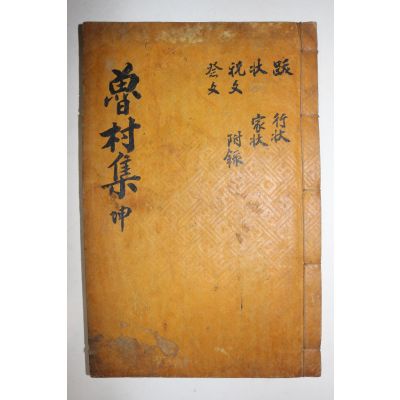 魯村集 坤
跋 行狀
狀 家狀
祝文 附錄
祭文